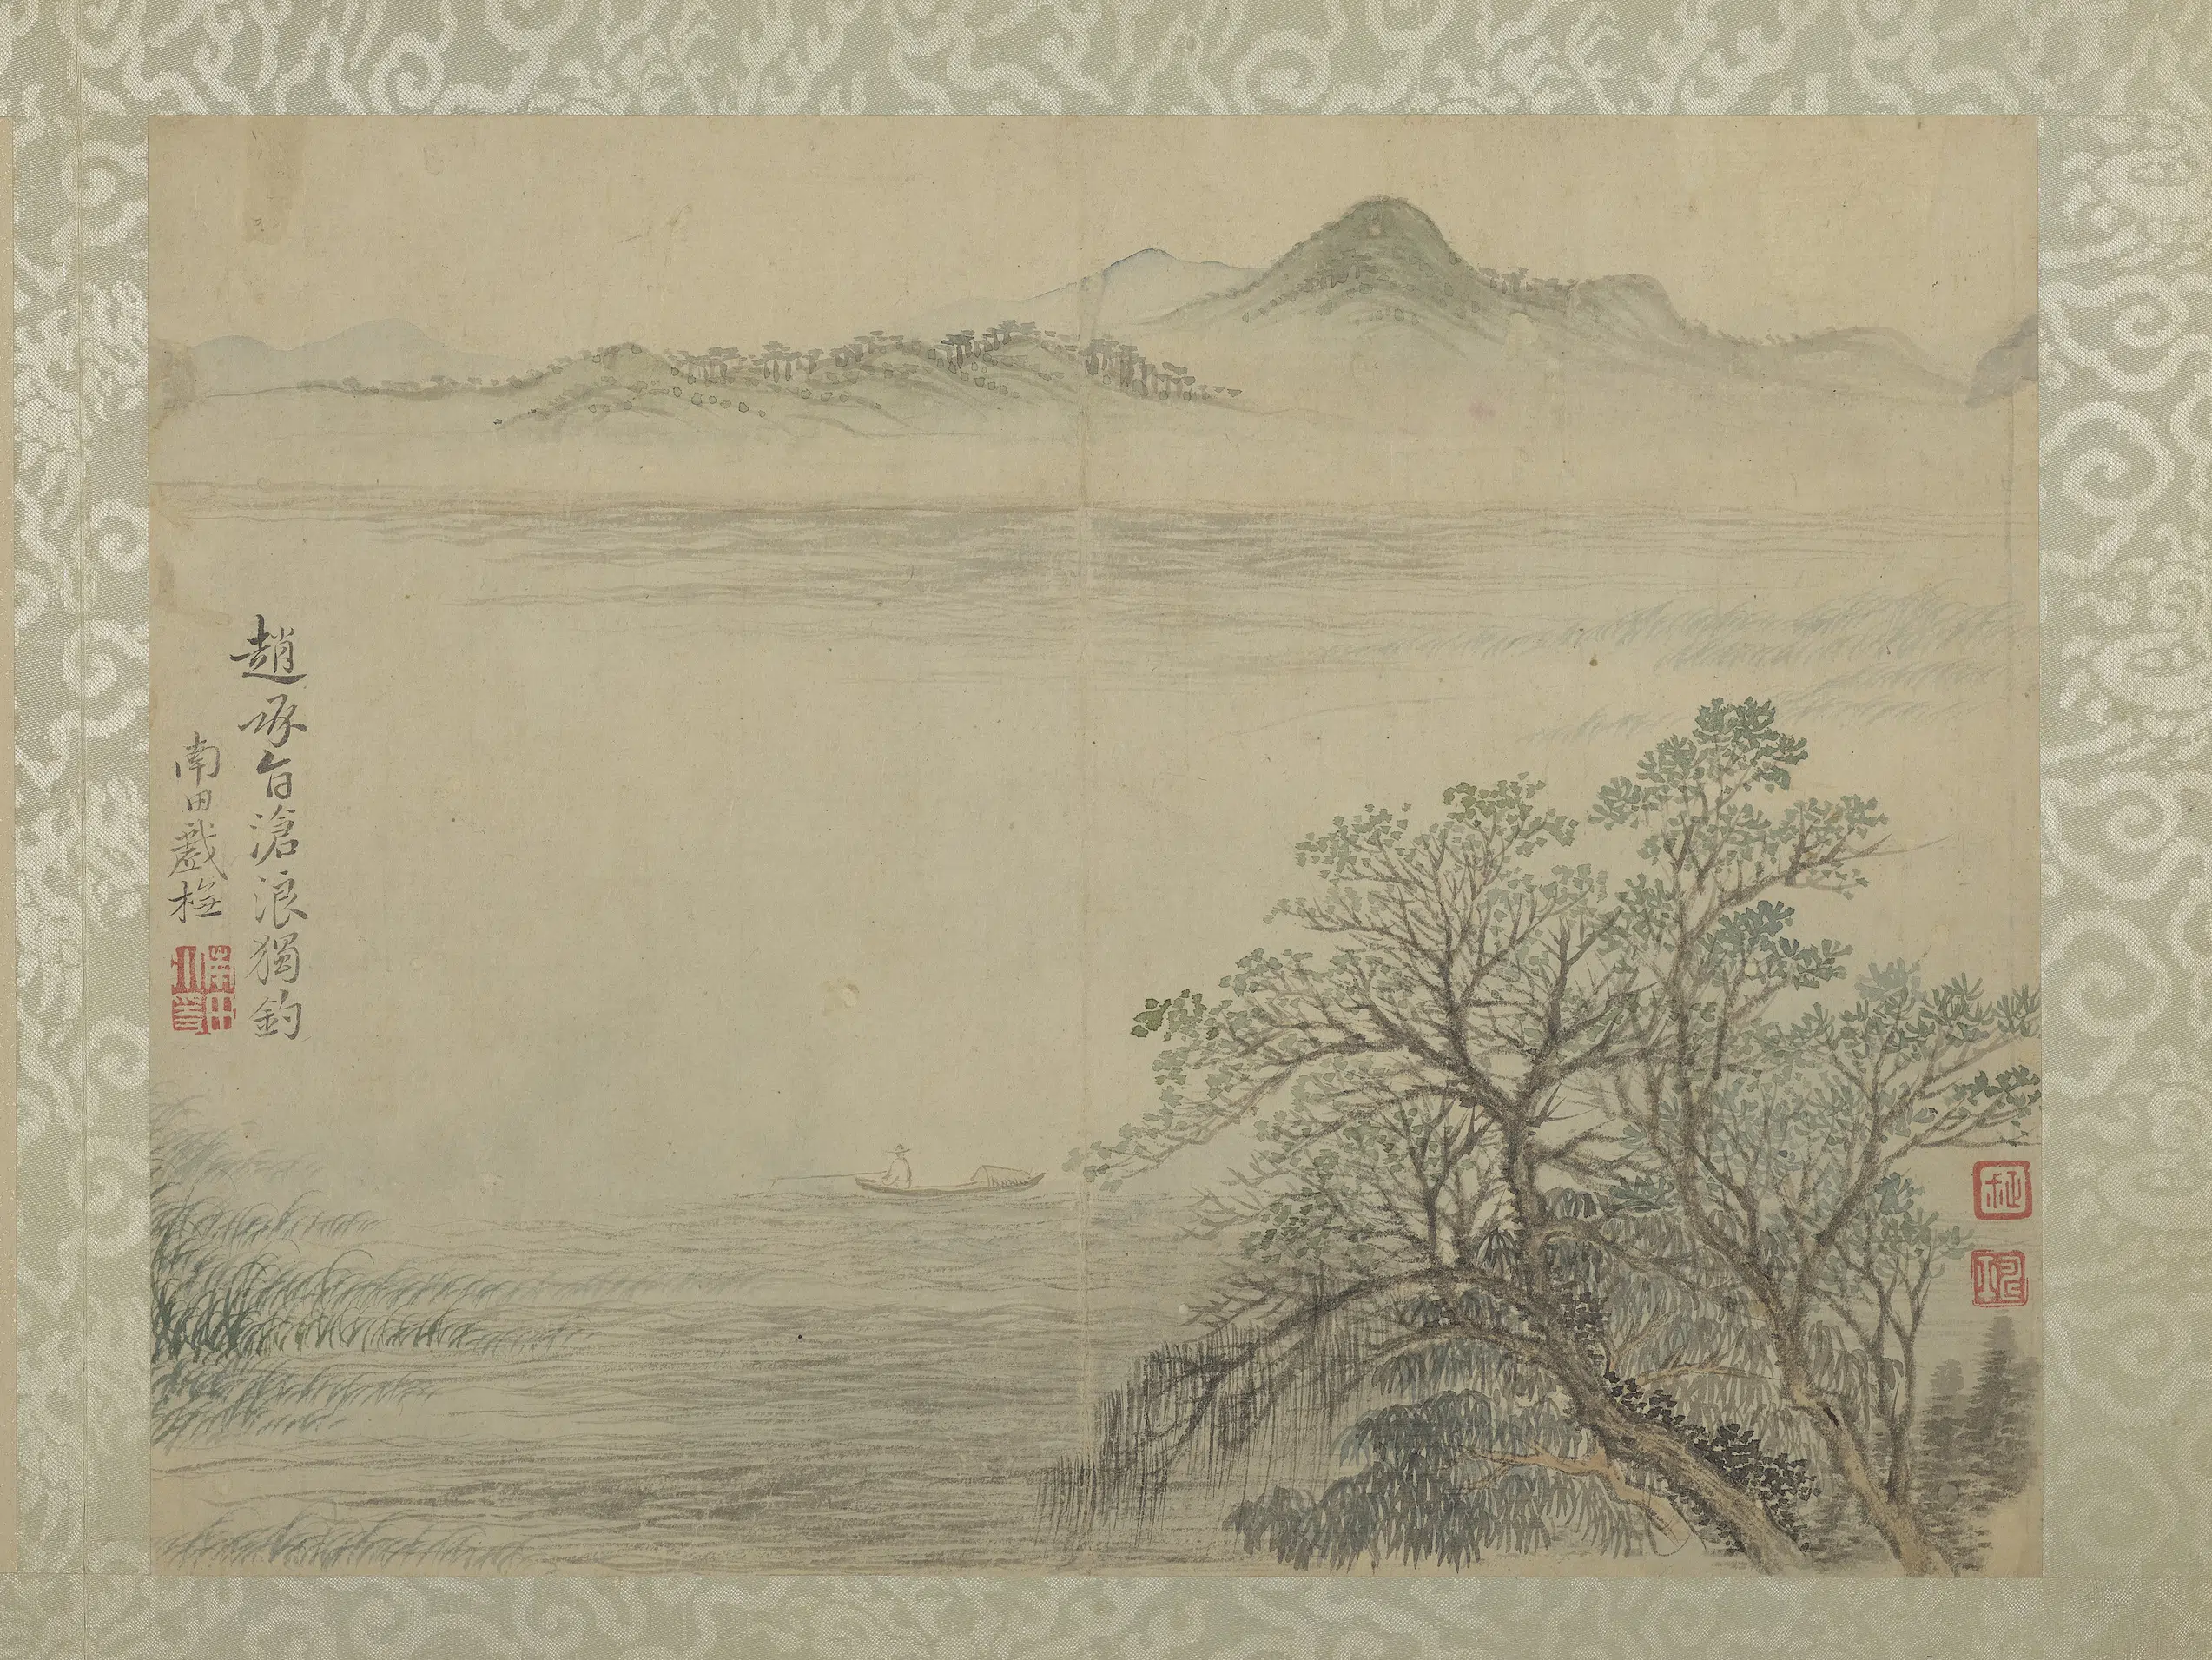 趙承旨滄浪獨釣
南田戲橅